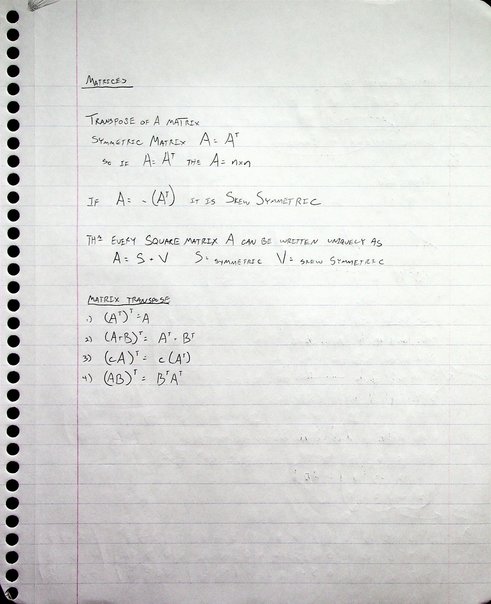 MATRICES
TRANSPOSE OF A MATRIX
SYMMETRIC MATRIX A = Aᵀ
SO IF A = Aᵀ THE A = n×n
IF A = -(Aᵀ) IT IS SKEW SYMMETRIC
THM EVERY SQUARE MATRIX A CAN BE WRITTEN UNIQUELY AS
A = S + V S = SYMMETRIC V = SKEW SYMMETRIC
MATRIX TRANSPOSE
1) (Aᵀ)ᵀ = A
2) (A+B)ᵀ = Aᵀ + Bᵀ
3) (cA)ᵀ = c(Aᵀ)
4) (AB)ᵀ = BᵀAᵀ